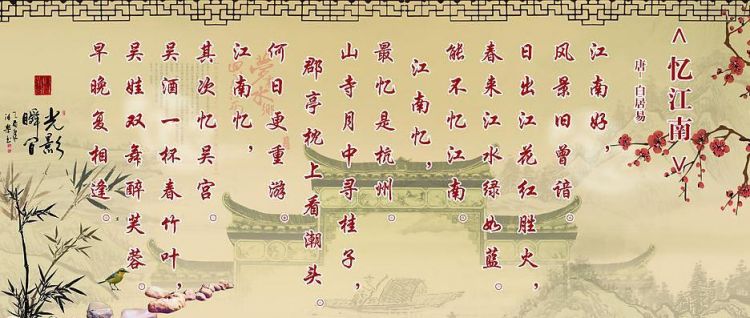 <忆江南>
唐-白居易
江南好，
风景旧曾谙。
日出江花红胜火，
春来江水绿如蓝。
能不忆江南。
江南忆，
最忆是杭州。
山寺月中寻桂子，
郡亭枕上看潮头。
何日更重游。
江南忆，
其次忆吴宫。
吴酒一杯春竹叶，
吴娃双舞醉芙蓉。
早晚复相逢。
光影
瞬间